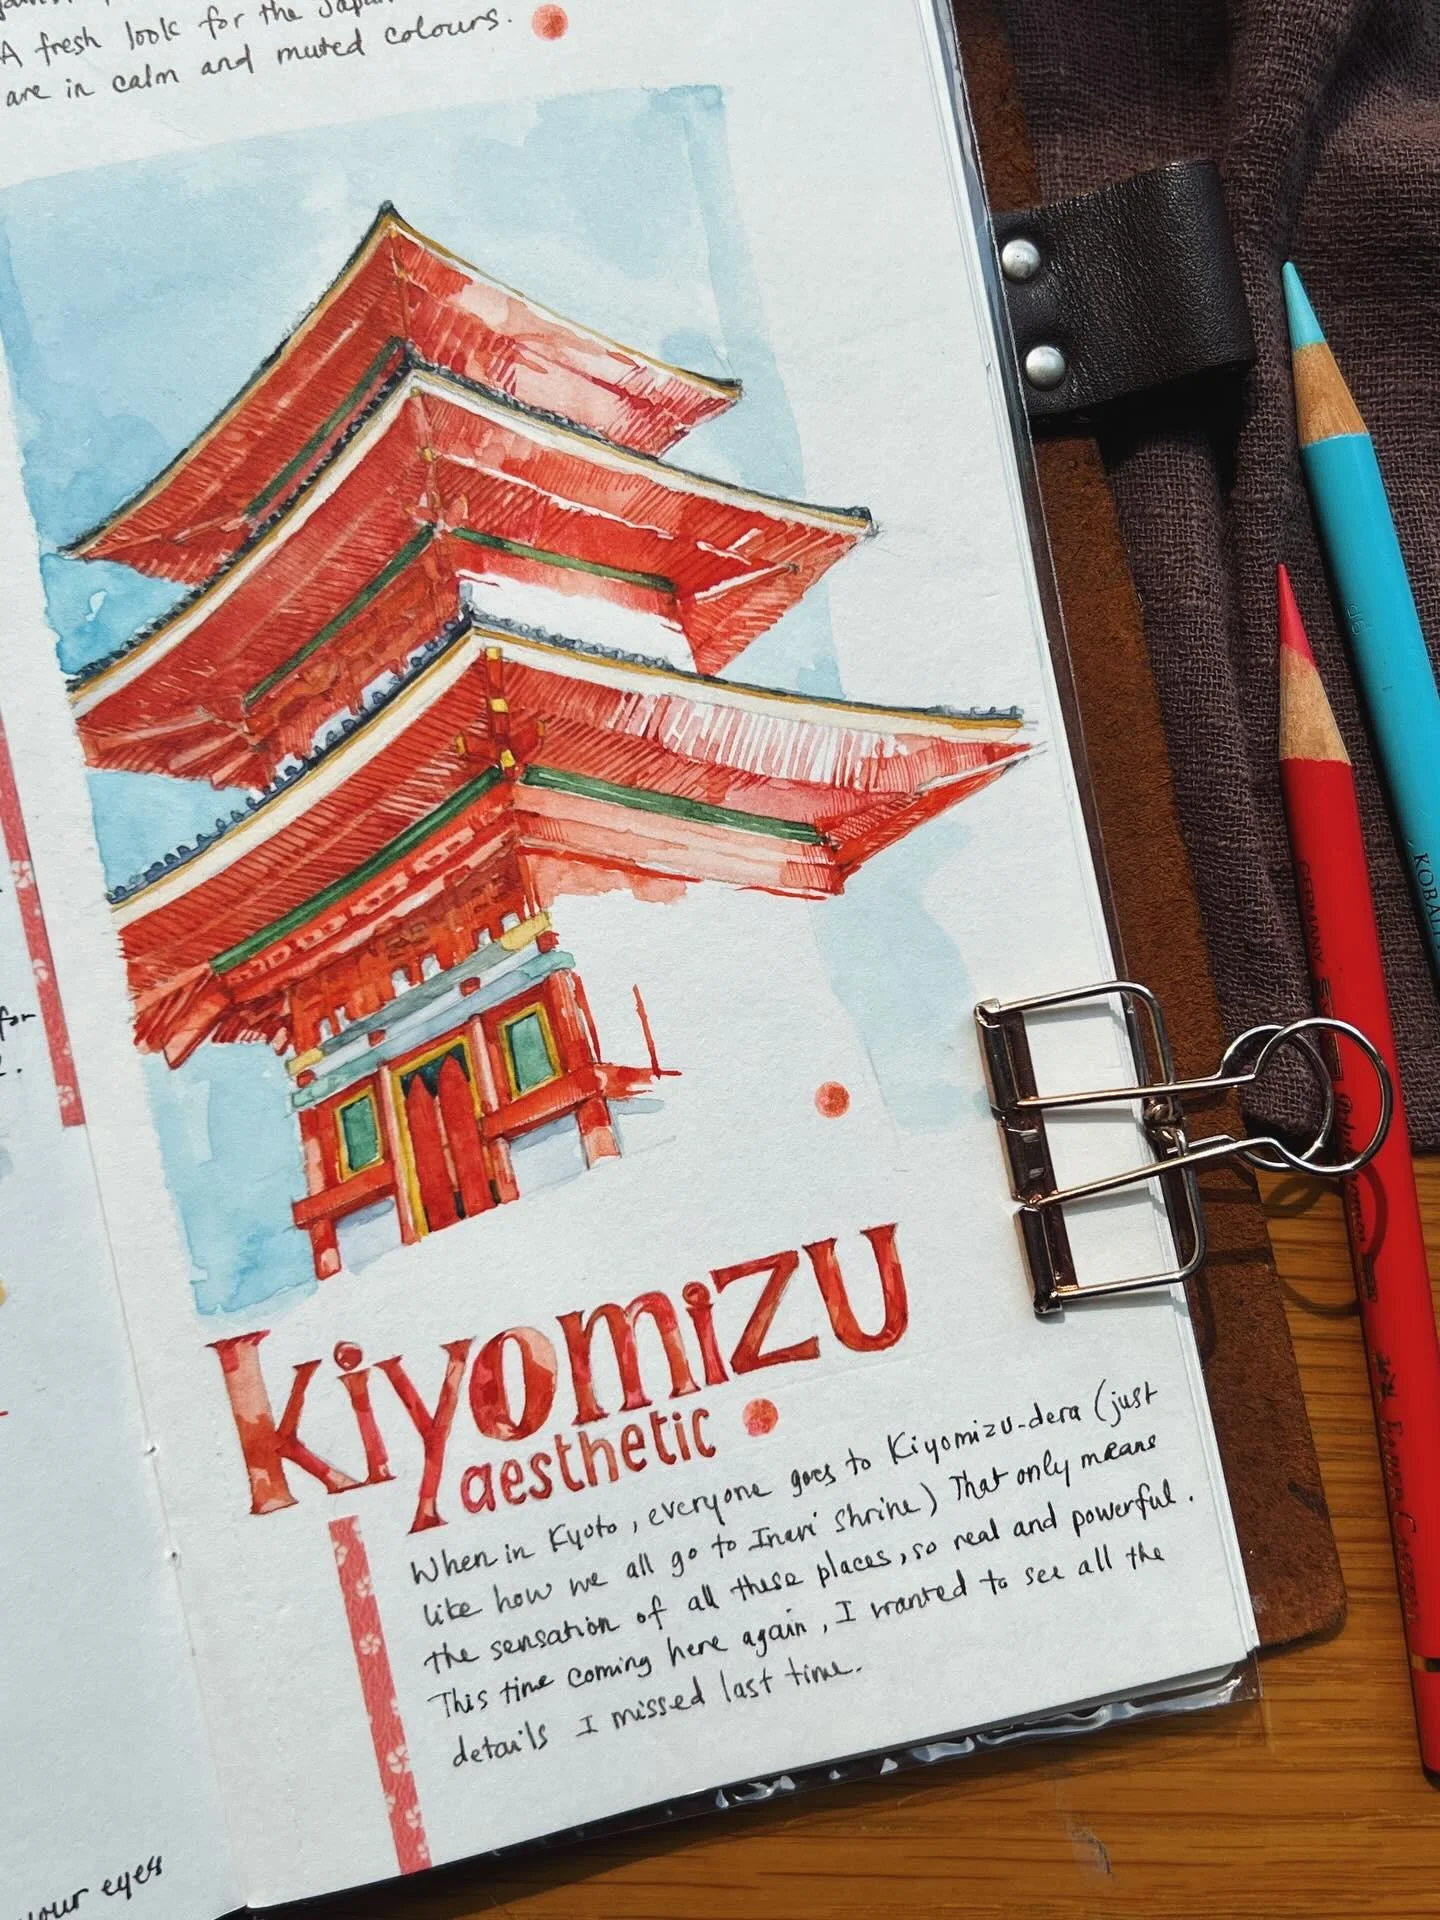 A fresh look for the Japan
are in calm and muted colours.
for
kiyomizu
aesthetic
When in Kyoto, everyone goes to Kiyomizu-dera (just
like how we all go to Inari Shrine) That only means
the sensation of all these places, so real and powerful.
This time coming here again, I wanted to see all the
details I missed last time.
your eyes
GERMANY
KOBALT